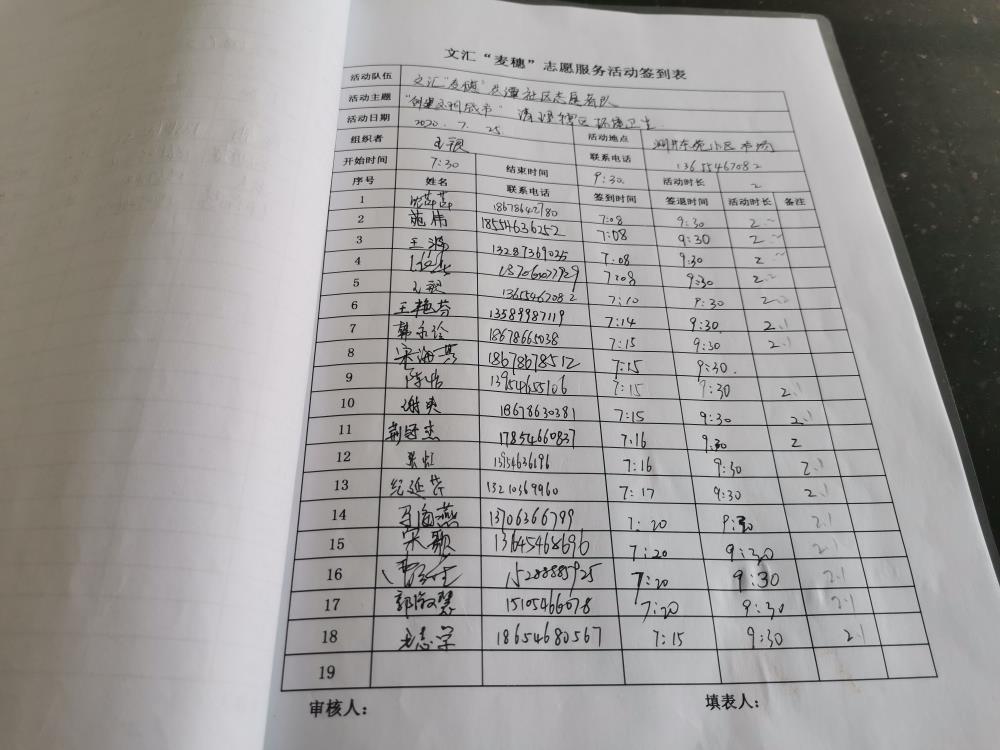 文汇“麦穗”志愿服务活动签到表
活动队伍 文汇“麦穗” 社区志愿者队
活动主题 “创建文明城市” 清理辖区环境卫生
活动日期 2020. 7. 25 活动地点
组织者 王颖 联系电话 13655467082
开始时间 7:30 结束时间 9:30. 活动时长 2
序号 姓名 联系电话 签到时间 签退时间 活动时长 备注
1 18678642780 7:08 9:30 2
2 施伟 18554636252 7:08 9:30 2
3 13287369025 7:08 9:30 2
4 7:08 9:30 2
5 王颖 13655467082 7:10 9:30 2
6 王艳芬 13589987119 7:14 9:30 2.1
7 韩永诠 18678665038 7:15 9:30 2.1
8 宋海英 18678678512 7:15 9:30.
9 陈伟 13954655106 7:15 9:30 2.1
10 谢爽 18678630381 7:15 9:30 2.1
11 荆冠杰 17854660837 7:16 9:30 2
12 张虹 13954636196 7:16 9:30 2.1
13 纪延芹 13210369960 7:17 9:30 2.1
14 马海燕 13706366799 7:20 9:30 2.1
15 宋颖 13645468696 7:20 9:30 2.1
16 15288885925 7:20 9:30 2.1
17 郭淑慧 15105466678 7:20 9:30 2.1
18 尤志学 18654680567 7:15 9:30 2.1
19
审核人： 填表人：